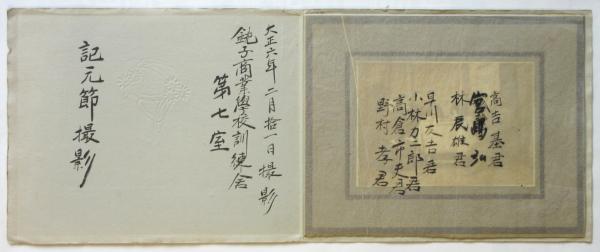 高吉 基君
宮嶋 弘
林 辰雄君
早川友吉君
小林力二郎君
高倉市夫君
野村 孝君
大正六年二月拾一日撮影
銚子商業學校訓練舍
第七室
記元節撮影